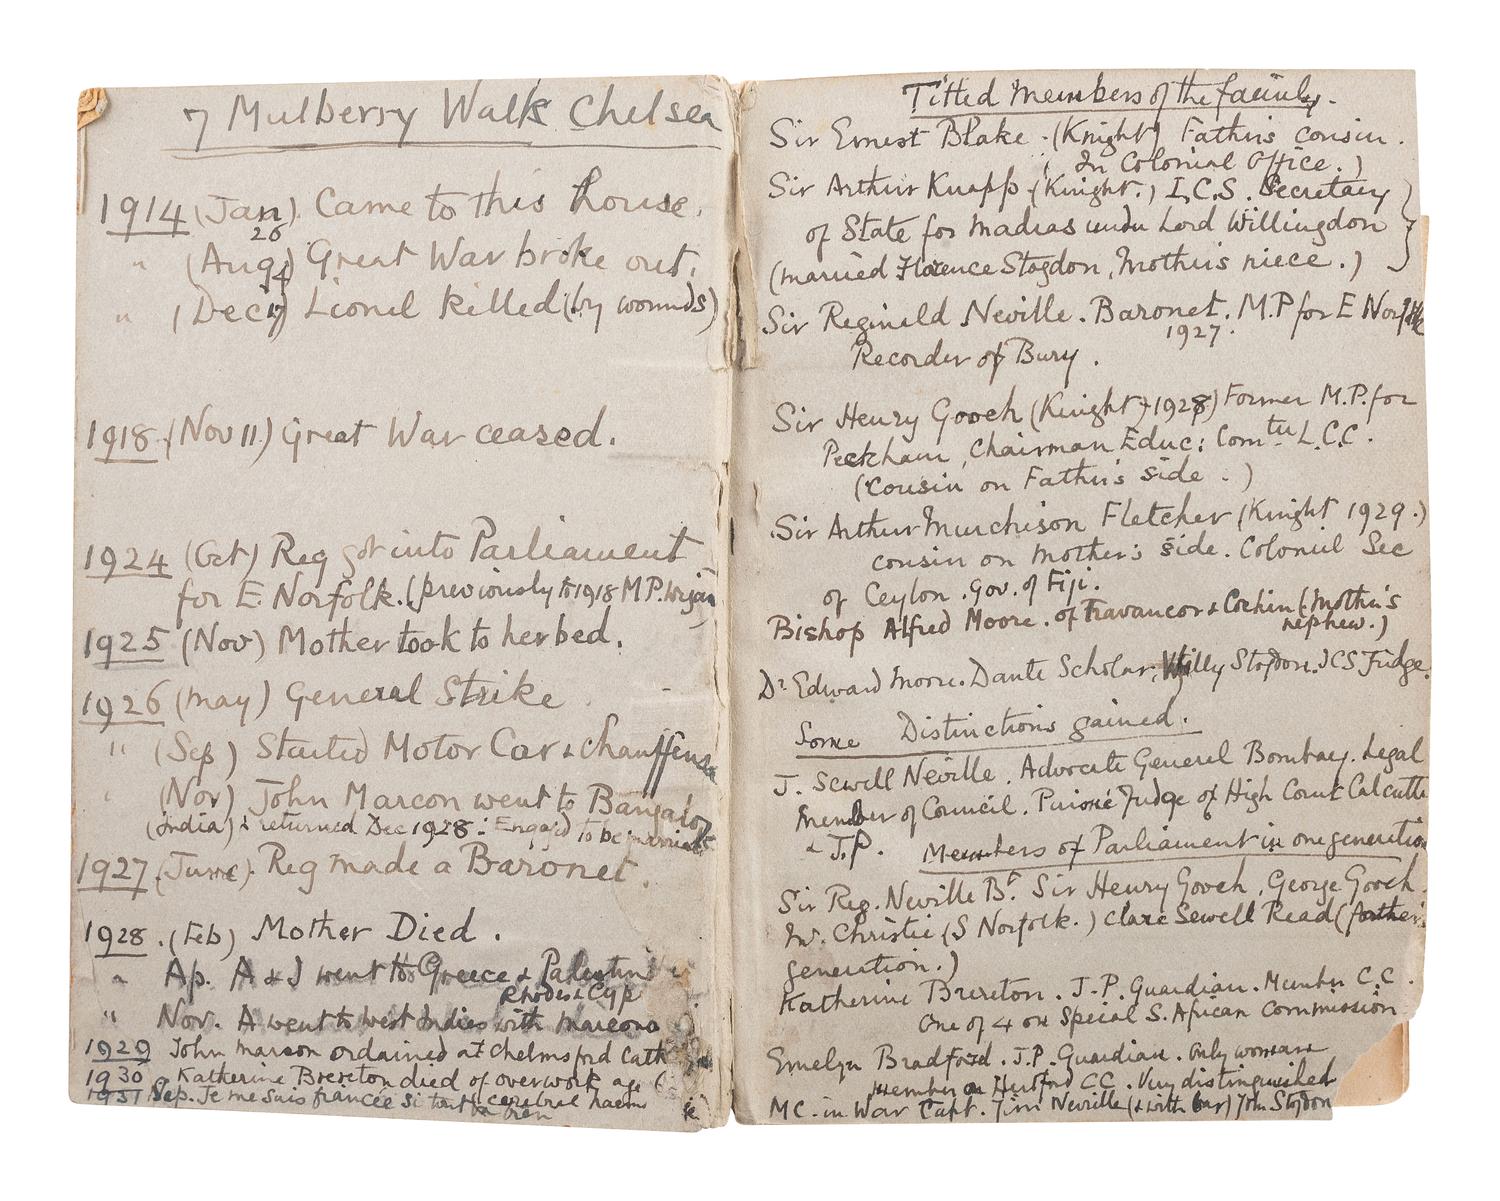 7 Mulberry Walk Chelsea
1914 (Jan 26) Came to this house.
" (Aug 4) Great War broke out.
" (Dec 17) Lionel killed (by wounds)
1918 (Nov 11) Great War ceased.
1924 (Oct) Reg got into Parliament
for E. Norfolk. (previously to 1918 M.P.
1925 (Nov) Mother took to her bed.
1926 (May) General Strike
" (Sep) Started Motor Car &
" (Nov) John Marcon went to Bangalor
(India) & returned Dec 1928. Engag'd to be
1927 (June). Reg made a Baronet.
1928. (Feb) Mother Died.
" Ap. A & J went to Greece &
Rhodes & Cyp
" Nov. A went to West Indies with Marcons
1929 John Marcon ordained at Chelmsford Cath
1930 Katherine Brereton died of overwork age
1931 Sep. Je me suis si cerebral haem
Titled Members of the family.
Sir Ernest Blake. (Knight) Father's cousin.
(In Colonial Office.)
Sir Arthur Knapp (Knight.) I.C.S. Secretary
of State for Madras under Lord Willingdon
(married Florence Stogdon, Mother's niece.)
Sir Reginald Neville. Baronet. M.P for E Norfolk
1927.
Recorder of Bury.
Sir Henry Gooch (Knight-1928) Former M.P. for
Peckham, Chairman Educ: Comtee L.C.C.
(cousin on Father's side.)
Sir Arthur Murchison Fletcher (Knight 1929.)
cousin on Mother's side. Colonial Sec
of Ceylon. Gov. of Fiji.
Bishop Alfred Moore. of Travancor & Cochin (Mother's
nephew.)
Dr Edward Moore. Dante Scholar. Willy Stogdon. ICS Judge.
Some Distinctions gained.
J. Sewell Neville. Advocate General Bombay. Legal
Member of Council. Puisne Judge of High Court Calcutta
& J.P. Members of Parliament in one generation
Sir Reg. Neville Bt. Sir Henry Gooch, George Gooch.
Christie (S Norfolk.) Clare Sewell Read (
generation.)
Katherine Brereton. J.P. Guardian. Member C.C.
One of 4 on Special S. African Commission
Emelyn Bradford. J.P. Guardian. Only woman
member on Hertford CC. Very distinguished
MC. in War Capt. Jim Neville (& with bar) John Stogdon